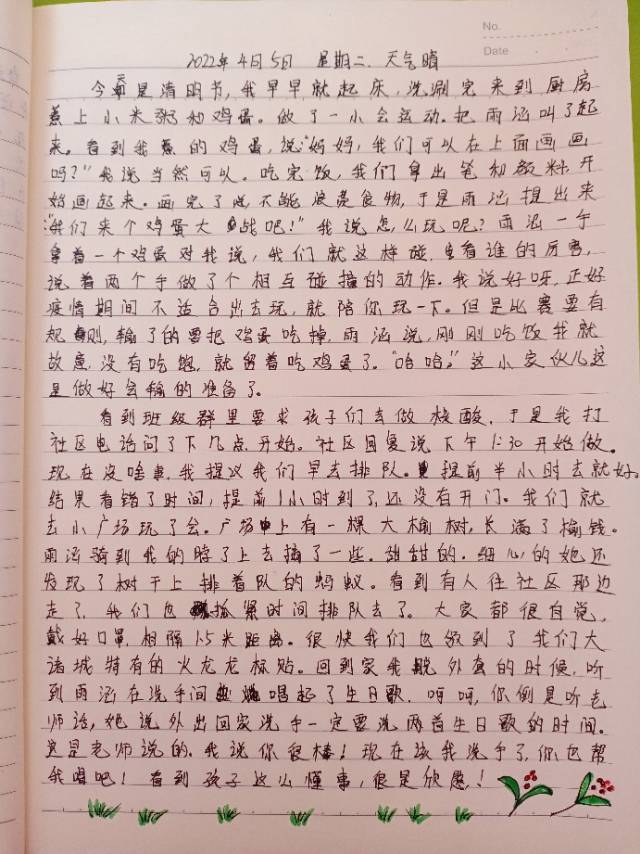 No.
Date
2022年4月5日 星期二. 天气晴
今天是清明节,我早早就起床,洗涮完来到厨房
煮上小米粥和鸡蛋。做了一小会运动.把雨涵叫了起
来。看到我煮的鸡蛋,说:“妈妈,我们可以在上面画画
吗?”我说当然可以。吃完饭,我们拿出笔和颜料开
始画起来.画完了也不能浪费食物,于是雨涵提出来
“我们来个鸡蛋大战吧!”我说怎么玩呢?雨涵一手
拿着一个鸡蛋对我说,我们就这样碰,看谁的厉害,
说着两个手做了个相互碰撞的动作.我说好呀,正好
疫情期间不适合出去玩,就陪你玩一下。但是比赛要有
规则,输了的要把鸡蛋吃掉.雨涵说,刚刚吃饭我就
故意没有吃饱,就留着吃鸡蛋了。“哈哈,”这小家伙儿这
是做好会输的准备了。
看到班级群里要求孩子们去做核酸,于是我打
社区电话问了下几点开始。社区回复说下午1:30开始做。
现在没啥事.我提议我们早去排队。提前半小时去就好。
结果看错了时间,提前1小时到了,还没有开门。我们就
去小广场玩了会。广场上有一棵大榆树,长满了榆钱。
雨涵骑到我的脖子上去摘了一些.甜甜的.细心的她还
发现了树干上排着队的蚂蚁。看到有人往社区那边
走了.我们也抓紧时间排队去了。大家都很自觉,
戴好口罩.相隔1.5米距离。很快我们也做到了我们大
诸城特有的火龙龙标贴。回到家我脱外套的时候,听
到雨涵在洗手间唱起了生日歌.呵呵,你倒是听老
师话,她说外出回家洗手一定要洗两首生日歌的时间。
这是老师说的.我说你很棒!现在该我洗手了,你也帮
我唱吧!看到孩子这么懂事,很是欣慰!